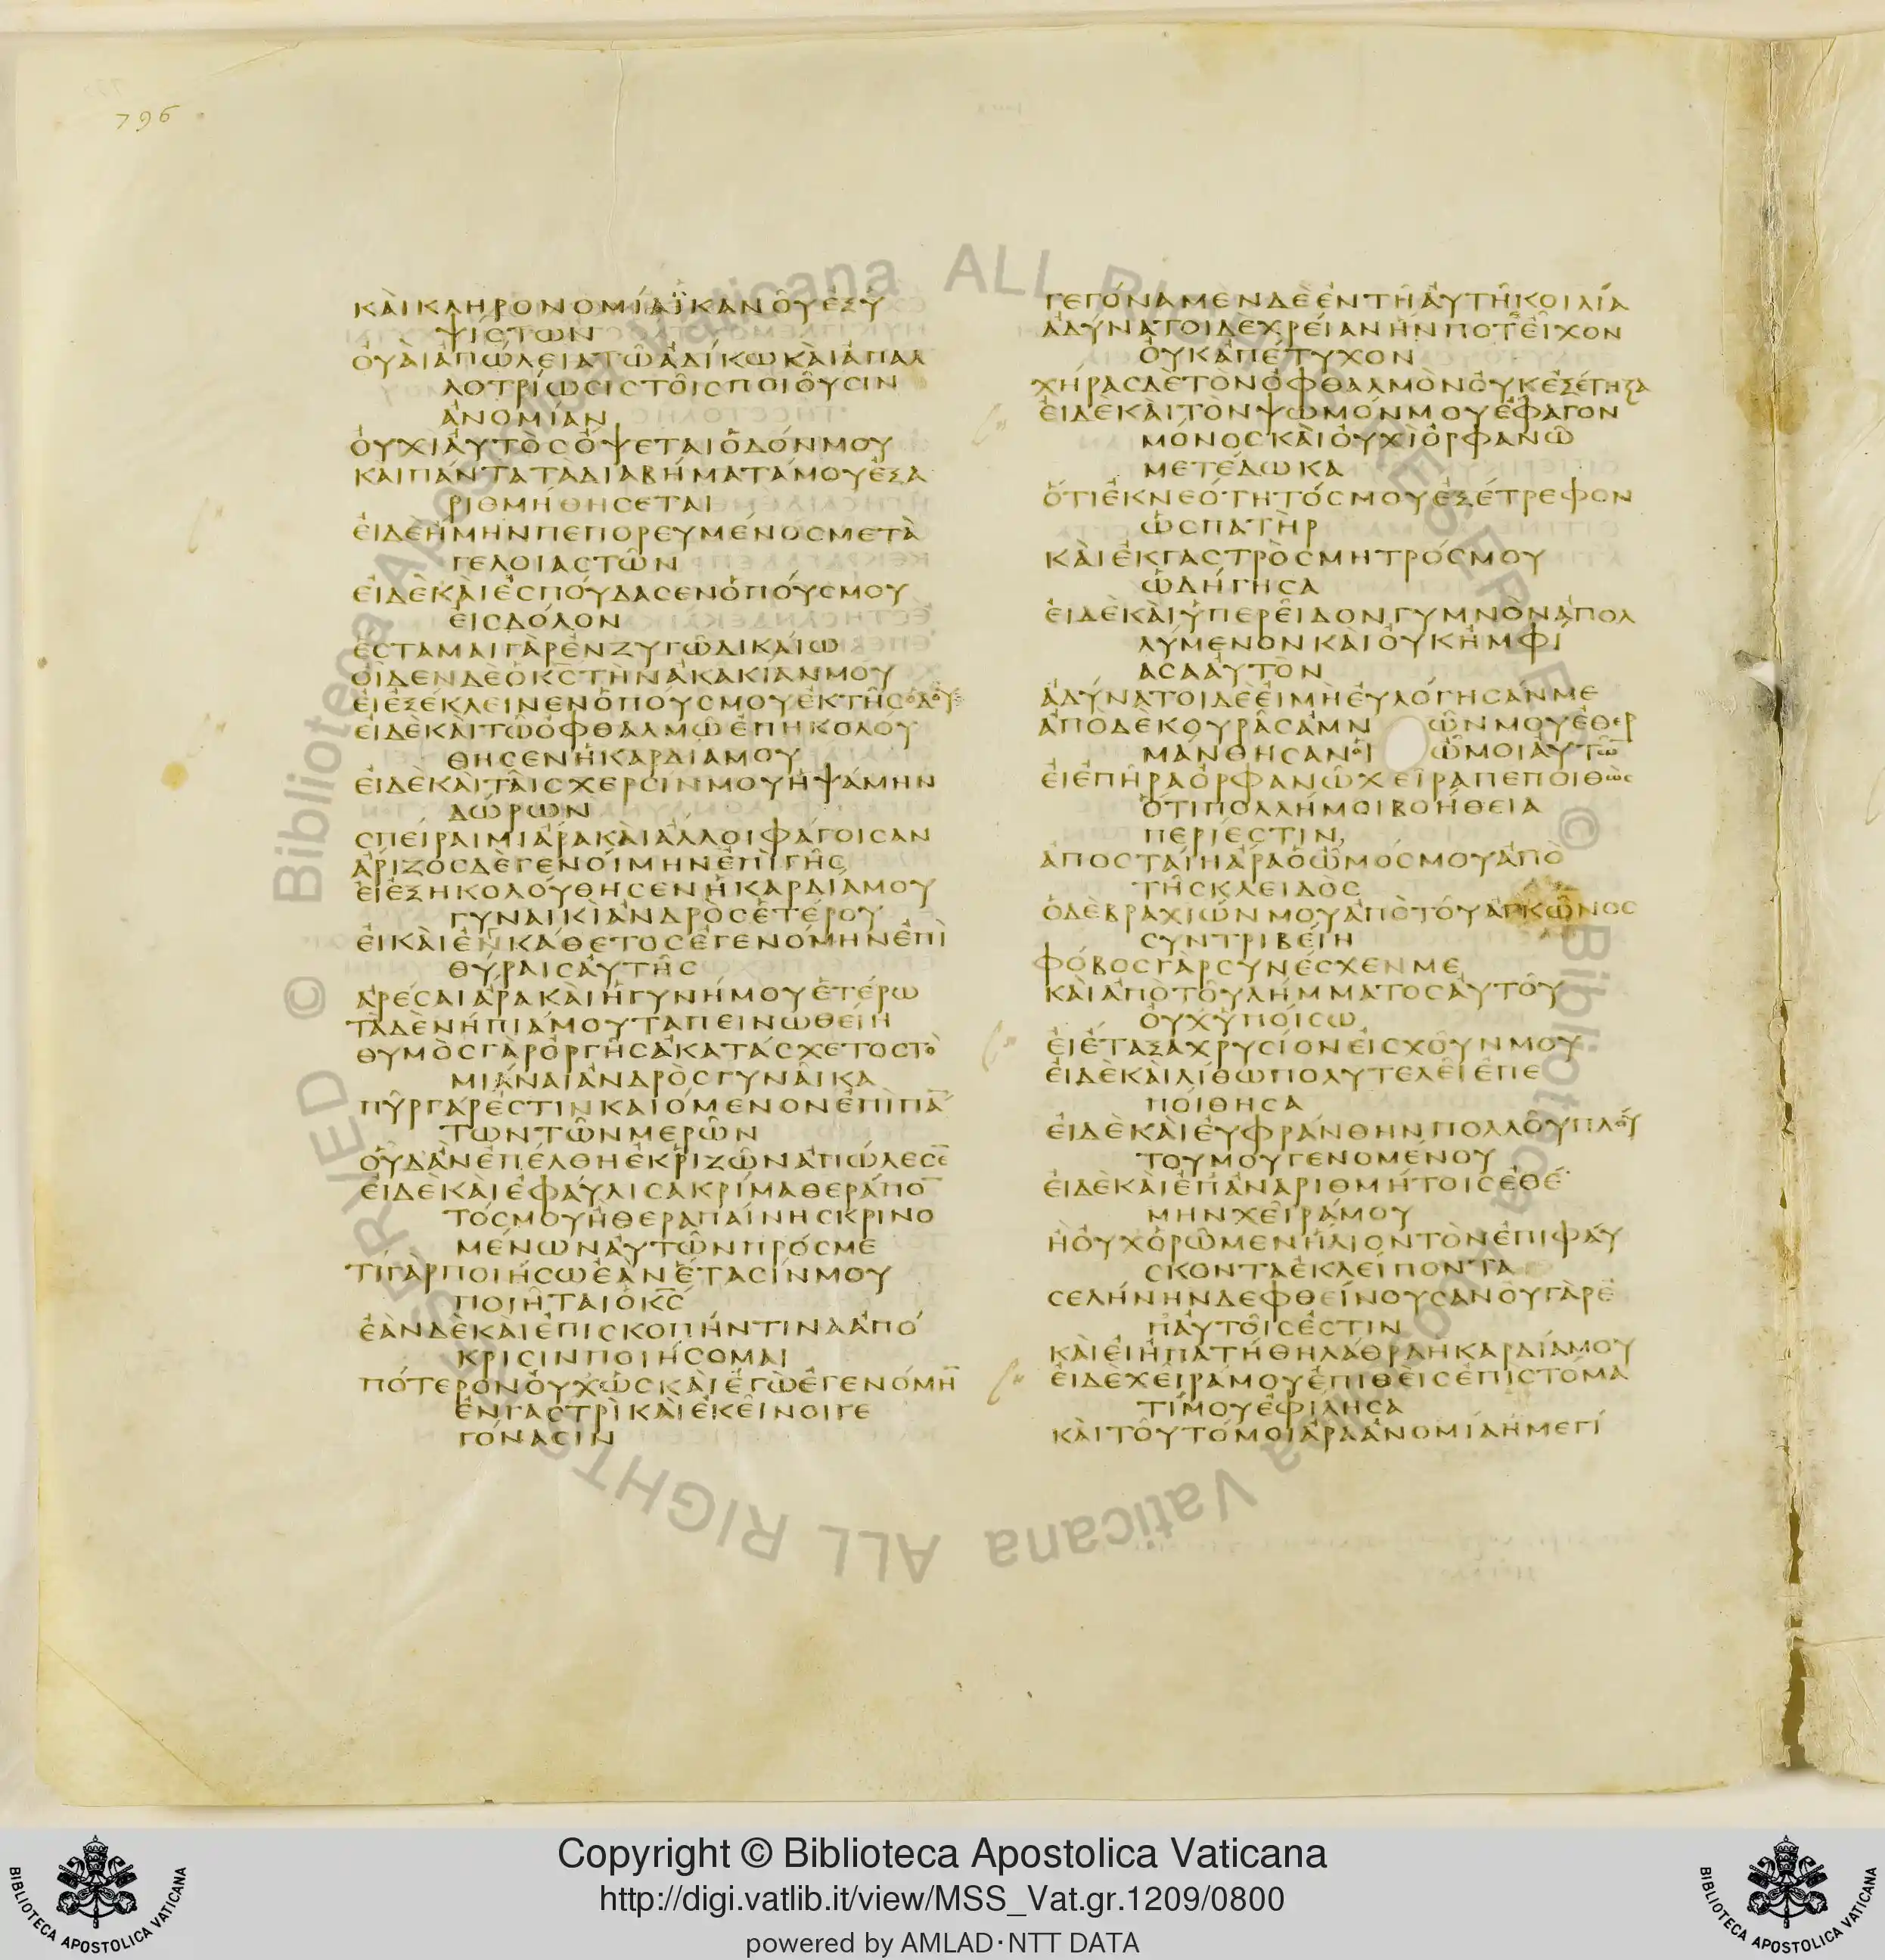 796
ΚΑΙΚΛΗΡΟΝΟΜΙΑΪΚΑΝΟΥΕΞΥ
ΨΙΣΤΩΝ
ΟΥΑΙΑΠΩΛΕΙΑΤΩΑΔΙΚΩΚΑΙΑΠΑΛ
ΛΟΤΡΙΩΣΙΣΤΟΙΣΠΟΙΟΥΣΙΝ
ΑΝΟΜΙΑΝ
ΟΥΧΙΑΥΤΟΣΟΨΕΤΑΙΟΔΟΝΜΟΥ
ΚΑΙΠΑΝΤΑΤΑΔΙΑΒΗΜΑΤΑΜΟΥΕΞΑ
ΡΙΘΜΗΘΗΣΕΤΑΙ
ΕΙΔΕΗΜΗΝΠΕΠΟΡΕΥΜΕΝΟΣΜΕΤΑ
ΓΕΛΟΙΑΣΤΩΝ
ΕΙΔΕΚΑΙΕΣΠΟΥΔΑΣΕΝΟΠΟΥΣΜΟΥ
ΕΙΣΔΟΛΟΝ
ΕΣΤΑΜΑΙΓΑΡΕΝΖΥΓΩΔΙΚΑΙΩ
ΟΙΔΕΝΔΕΟΚΣΤΗΝΑΚΑΚΙΑΝΜΟΥ
ΕΙΕΞΕΚΛΕΙΝΕΝΟΠΟΥΣΜΟΥΕΚΤΗΣΟΔΟΥ
ΕΙΔΕΚΑΙΤΩΟΦΘΑΛΜΩΕΠΗΚΟΛΟΥ
ΘΗΣΕΝΗΚΑΡΔΙΑΜΟΥ
ΕΙΔΕΚΑΙΤΑΙΣΧΕΡΣΙΝΜΟΥΗΨΑΜΗΝ
ΔΩΡΩΝ
ΣΠΕΙΡΑΙΜΙΑΡΑΚΑΙΑΛΛΟΙΦΑΓΟΙΣΑΝ
ΑΡΙΖΟΣΔΕΓΕΝΟΙΜΗΝΕΠΙΓΗΣ
ΕΙΕΞΗΚΟΛΟΥΘΗΣΕΝΗΚΑΡΔΙΑΜΟΥ
ΓΥΝΑΙΚΙΑΝΔΡΟΣΕΤΕΡΟΥ
ΕΙΚΑΙΕΝΚΑΘΕΤΟΣΕΓΕΝΟΜΗΝΕΠΙ
ΘΥΡΑΙΣΑΥΤΗΣ
ΑΡΕΣΑΙΑΡΑΚΑΙΗΓΥΝΗΜΟΥΕΤΕΡΩ
ΤΑΔΕΝΗΠΙΑΜΟΥΤΑΠΕΙΝΩΘΕΙΗ
ΘΥΜΟΣΓΑΡΟΡΓΗΣΑΚΑΤΑΣΧΕΤΟΣΤΟ
ΜΙΑΝΑΙΑΝΔΡΟΣΓΥΝΑΙΚΑ
ΠΥΡΓΑΡΕΣΤΙΝΚΑΙΟΜΕΝΟΝΕΠΙΠΑ̅
ΤΩΝΤΩΝΜΕΡΩΝ
ΟΥΔΑΝΕΠΕΛΘΗΕΚΡΙΖΩΝΑΠΩΛΕΣΕ̅
ΕΙΔΕΚΑΙΕΦΑΥΛΙΣΑΚΡΙΜΑΘΕΡΑΠΟ̅
ΤΟΣΜΟΥΗΘΕΡΑΠΑΙΝΗΣΚΡΙΝΟ
ΜΕΝΩΝΑΥΤΩΝΠΡΟΣΜΕ
ΤΙΓΑΡΠΟΙΗΣΩΕΑΝΕΤΑΣΙΝΜΟΥ
ΠΟΙΗΤΑΙΟΚ̅Σ̅
ΕΑΝΔΕΚΑΙΕΠΙΣΚΟΠΗΝΤΙΝΑΑΠΟ
ΚΡΙΣΙΝΠΟΙΗΣΟΜΑΙ
ΠΟΤΕΡΟΝΟΥΧΩΣΚΑΙΕΓΩΕΓΕΝΟΜΗ̅
ΕΝΓΑΣΤΡΙΚΑΙΕΚΕΙΝΟΙΓΕ
ΓΟΝΑΣΙΝ
ΓΕΓΟΝΑΜΕΝΔΕΕΝΤΗΑΥΤΗΚΟΙΛΙΑ
ΑΔΥΝΑΤΟΙΔΕΧΡΕΙΑΝΗΝΠΟΤΕΙΧΟΝ
ΟΥΚΑΠΕΤΥΧΟΝ
ΧΗΡΑΣΔΕΤΟΝΟΦΘΑΛΜΟΝΟΥΚΕΞΕΤΗΞΑ
ΕΙΔΕΚΑΙΤΟΝΨΩΜΟΝΜΟΥΕΦΑΓΟΝ
ΜΟΝΟΣΚΑΙΟΥΧΙΟΡΦΑΝΩ
ΜΕΤΕΔΩΚΑ
ΟΤΙΕΚΝΕΟΤΗΤΟΣΜΟΥΕΞΕΤΡΕΦΟΝ
ΩΣΠΑΤΗΡ
ΚΑΙΕΚΓΑΣΤΡΟΣΜΗΤΡΟΣΜΟΥ
ΩΔΗΓΗΣΑ
ΕΙΔΕΚΑΙΥΠΕΡΕΙΔΟΝΓΥΜΝΟΝΑΠΟΛ
ΛΥΜΕΝΟΝΚΑΙΟΥΚΗΜΦΙ
ΑΣΑΑΥΤΟΝ
ΑΔΥΝΑΤΟΙΔΕΕΙΜΗΕΥΛΟΓΗΣΑΝΜΕ
ΑΠΟΔΕΚΟΥΡΑΣΑΜΝ ΩΝΜΟΥΕΘΕΡ
ΜΑΝΘΗΣΑΝΟΙ ΩΜΟΙΑΥΤΩ̅
ΕΙΕΠΗΡΑΟΡΦΑΝΩΧΕΙΡΑΠΕΠΟΙΘΩΣ
ΟΤΙΠΟΛΛΗΜΟΙΒΟΗΘΕΙΑ
ΠΕΡΙΕΣΤΙΝ
ΑΠΟΣΤΑΙΗΑΡΑΟΩΜΟΣΜΟΥΑΠΟ
ΤΗΣΚΛΕΙΔΟΣ
ΟΔΕΒΡΑΧΙΩΝΜΟΥΑΠΟΤΟΥΑΓΚΩΝΟΣ
ΣΥΝΤΡΙΒΕΙΗ
ΦΟΒΟΣΓΑΡΣΥΝΕΣΧΕΝΜΕ
ΚΑΙΑΠΟΤΟΥΛΗΜΜΑΤΟΣΑΥΤΟΥ
ΟΥΧΥΠΟΙΣΩ
ΕΙΕΤΑΞΑΧΡΥΣΙΟΝΕΙΣΧΟΥΝΜΟΥ
ΕΙΔΕΚΑΙΛΙΘΩΠΟΛΥΤΕΛΕΙΕΠΕ
ΠΟΙΘΗΣΑ
ΕΙΔΕΚΑΙΕΥΦΡΑΝΘΗΝΠΟΛΛΟΥΠΛΟΥ
ΤΟΥΜΟΥΓΕΝΟΜΕΝΟΥ
ΕΙΔΕΚΑΙΕΠΑΝΑΡΙΘΜΗΤΟΙΣΕΘΕ
ΜΗΝΧΕΙΡΑΜΟΥ
ΗΟΥΧΟΡΩΜΕΝΗΛΙΟΝΤΟΝΕΠΙΦΑΥ
ΣΚΟΝΤΑΕΚΛΕΙΠΟΝΤΑ
ΣΕΛΗΝΗΝΔΕΦΘΕΙΝΟΥΣΑΝΟΥΓΑΡΕ
ΠΑΥΤΟΙΣΕΣΤΙΝ
ΚΑΙΕΙΗΠΑΤΗΘΗΛΑΘΡΑΗΚΑΡΔΙΑΜΟΥ
ΕΙΔΕΧΕΙΡΑΜΟΥΕΠΙΘΕΙΣΕΠΙΣΤΟΜΑ
ΤΙΜΟΥΕΦΙΛΗΣΑ
ΚΑΙΤΟΥΤΟΜΟΙΑΡΑΑΝΟΜΙΑΗΜΕΓΙ
© Biblioteca Apostolica Vaticana ALL RIGHTS RESERVED
© Biblioteca Apostolica Vaticana ALL RIGHTS RESERVED
Copyright © Biblioteca Apostolica Vaticana
http://digi.vatlib.it/view/MSS_Vat.gr.1209/0800
powered by AMLAD·NTT DATA
BIBLIOTECA APOSTOLICA VATICANA
BIBLIOTECA APOSTOLICA VATICANA